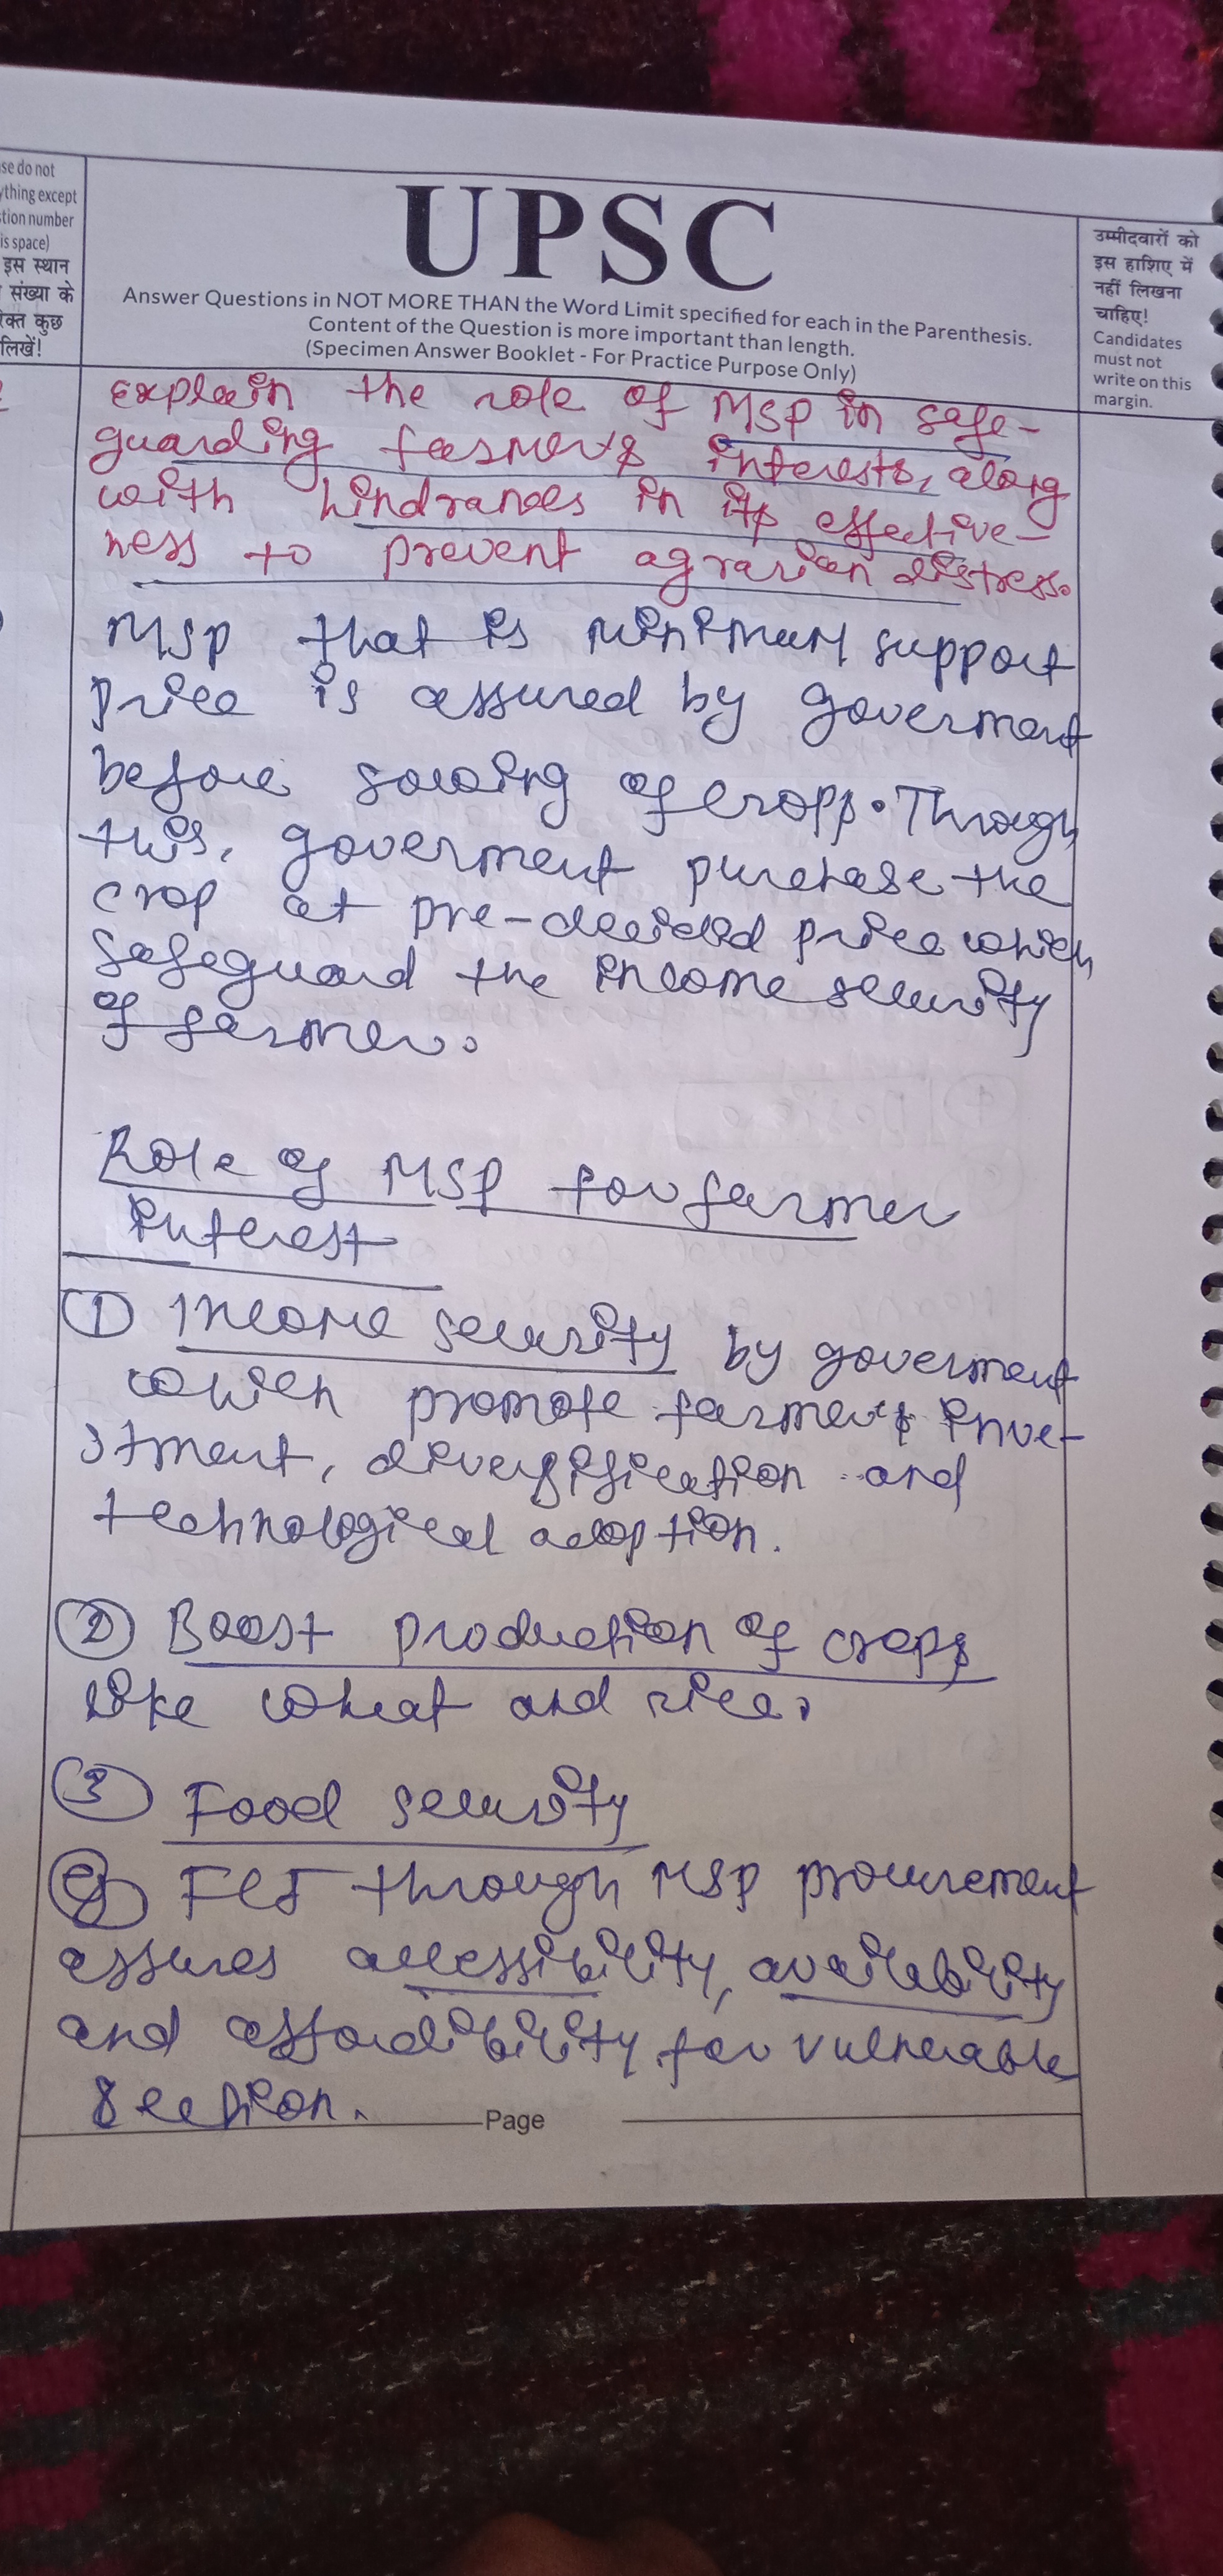 se do not
ything except
stion number
is space)
इस स्थान
संख्या के
रिक्त कुछ
लिखें!
UPSC
Answer Questions in NOT MORE THAN the Word Limit specified for each in the Parenthesis.
Content of the Question is more important than length.
(Specimen Answer Booklet - For Practice Purpose Only)
उम्मीदवारों को
इस हाशिए में
नहीं लिखना
चाहिए!
Candidates
must not
write on this
margin.
Explain the role of MSP in safe-
guarding farmer's interests, along
with hindrances in its effective-
ness to prevent agrarian distress.
MSP that is minimum support
price is assured by goverment
before sowing of crops. Through
this, goverment purchase the
crop at pre-decided price which
safeguard the income security
of farmer.
Role of MSP for farmer
interest
① Income security by goverment
which promote farmer's inve-
stment, diversification and
technological adoption.
② Boost production of crops
like wheat and rice.
③ Food security
eg FCI through MSP procurement
assures accessibility, availability
and affordibility for vulnerable
section.
Page